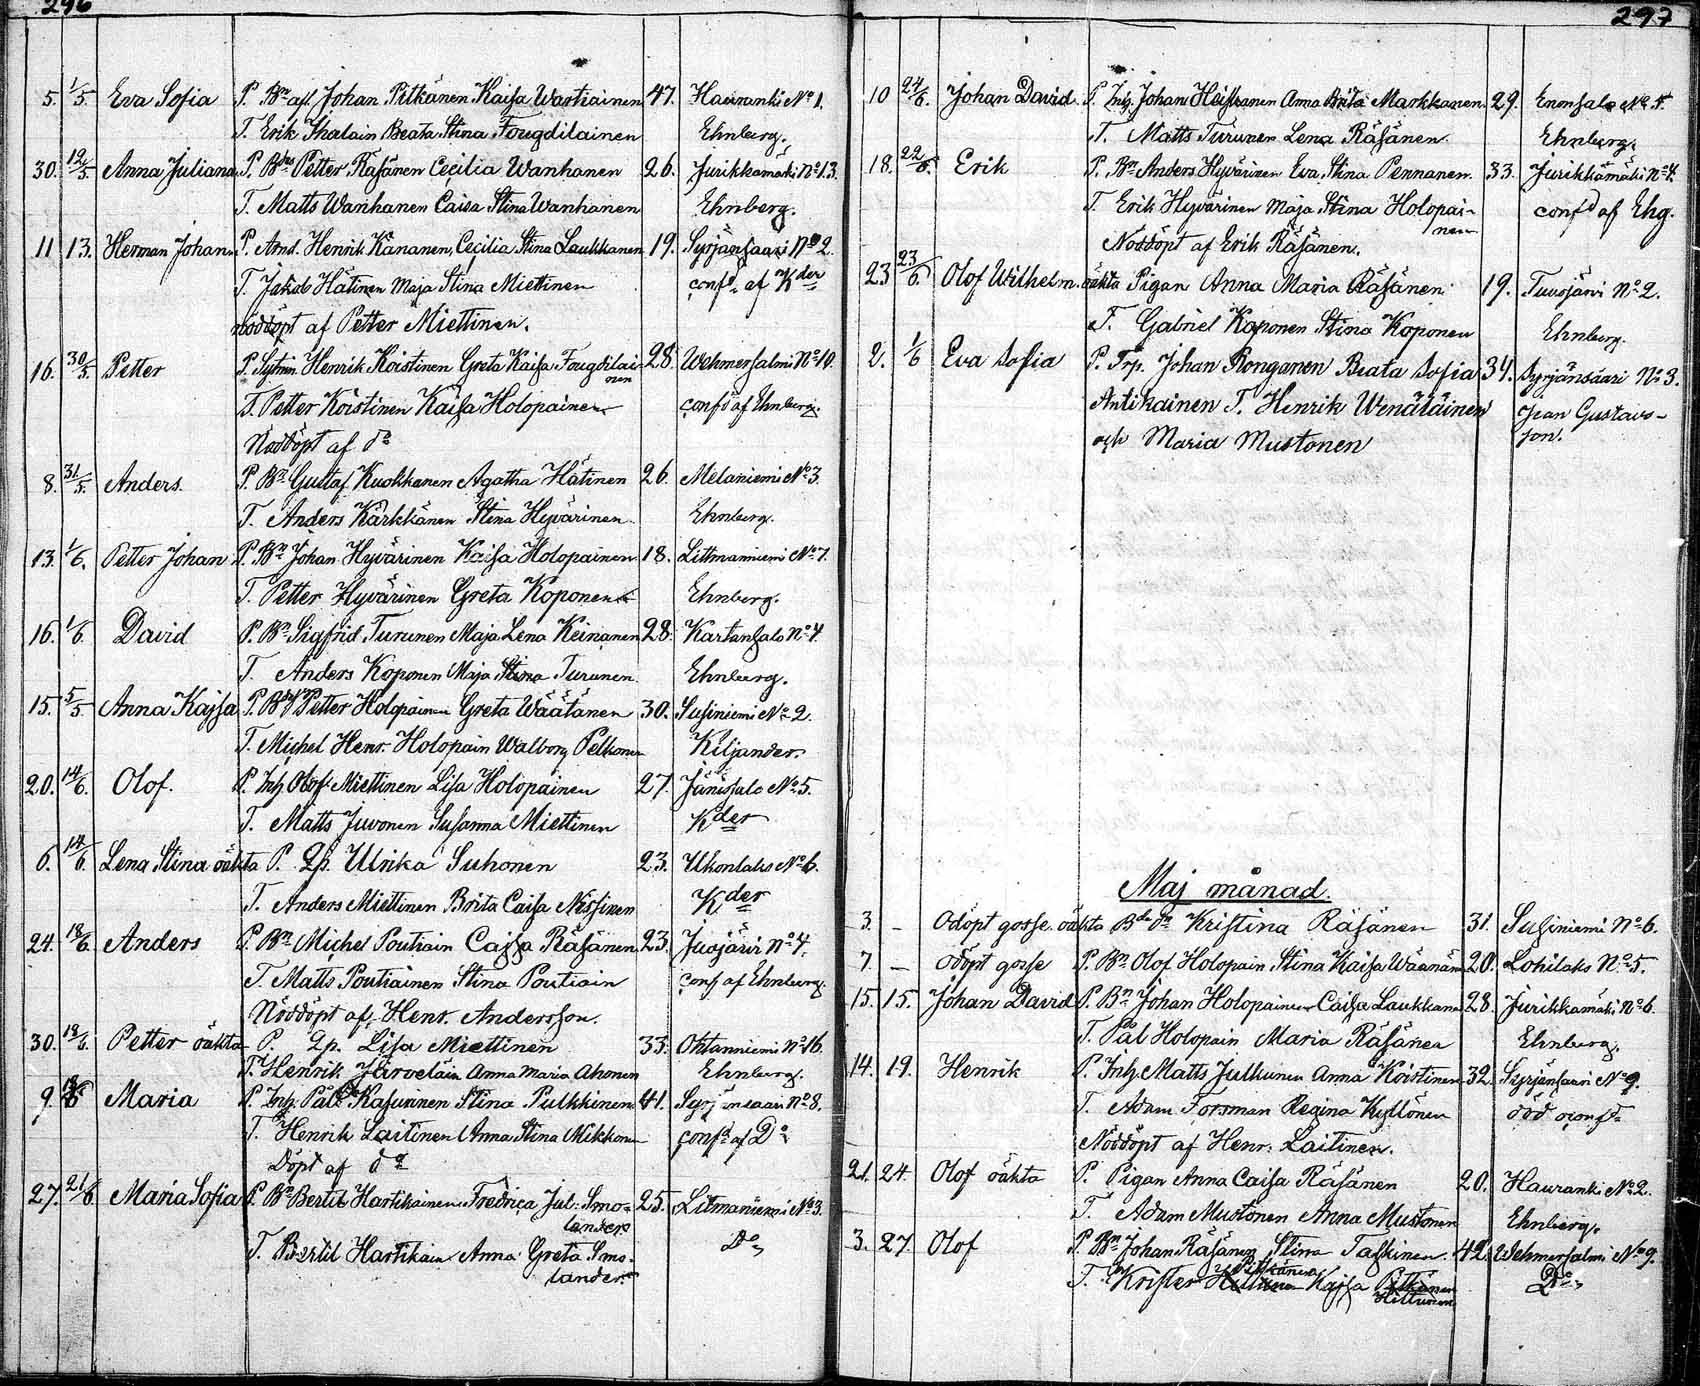 296
5. 1/5. Eva Sofia P. Bn afl. Johan Pitkänen Kaisa Wartiainen 47. Hauranki No 1.
T. Erik Ihalain Beata Stina Fougdilainen Ehnberg.
30. 12/5. Anna Juliana P. Bds Petter Räsänen Cecilia Wanhanen 26. Jurikkamäki No 13.
T. Matts Wanhanen Caisa Stina Wanhanen Ehnberg.
11 13. Herman Johan P. Arnd. Henrik Känanen, Cecilia Stina Laukkanen 19. Syrjänsaari No 2.
T. Jakob Hätinen Maja Stina Miettinen confd. af Kder
nöddöpt af Petter Miettinen.
16. 30/5. Petter P. Sytmn. Henrik Koistinen Greta Kaisa Fougdilai- 28. Wehmersalmi No 10.
nen
T. Petter Koistinen Kaisa Holopainen confd af Ehnberg.
Nöddöpt af do
8. 31/5. Anders. P. Bn Gustaf Kuokkanen Agatha Hätinen 26. Melaniemi No 3.
T. Anders Kärkkänen Stina Hyvärinen. Ehnberg.
13. 1/6. Petter Johan P. Bn Johan Hyvärinen Kaisa Holopainen 18. Littmanniemi No 7.
T. Petter Hyvärinen Greta Koponen Ehnberg.
16. 1/6 David P. Bn Sigfrid Turunen Maja Lena Keinanen 28. Kartansalo No 4.
T. Anders Koponen Maja Stina Turunen. Ehnberg.
15. 5/5 Anna Kajsa P. Petter Holopainen Greta Wäätänen 30. Susiniemi No 2.
T. Michel Henr. Holopain Walborg Pelkonen Kiljander.
20. 14/6. Olof. P. Inh Olof Miettinen Lisa Holopainen 27. Jänissalo No 5.
T. Matts Juvonen Susanna Miettinen Kder
6. 14/6 Lena Stina oäkta P. Qp. Ulrika Suhonen 23. Ukonlaks No 6.
T. Anders Miettinen Brita Caisa Nissinen Kder
24. 18/6. Anders P. Bn Michel Poutiain Cajsa Räsänen 23. Juojärvi No 4.
T. Matts Poutiainen Stina Poutiain conf af Ehnberg.
Nöddöpt af Henr. Andersson.
30. 18/6. Petter oäkta P. Qp. Lisa Miettinen 33. Ohtanniemi No 16.
T. Henrik Järveläin Anna Maria Ahonen Ehnberg.
9. Maria P. Inh. Pål Kasurinen Stina Pulkkinen 41. Syrjänsaari No 8.
T. Henrik Laitinen Anna Stina Mikkonen confd af Do
Döpt af do
27. 21/6 Maria Sofia P. Bn Bertil Hartikainen Fredrica Jul. Smo- 25. Litmaniemi No 3.
lander
T. Bertil Hartikain Anna Greta Smo- Do
lander
297
10 24/6. Johan David. P. Inh. Johan Heiskanen Anna Brita Markkanen 29. Enonsalo No 5.
T. Matts Turunen Lena Räsänen. Ehnberg.
18. 22/6. Erik P. Bn Anders Hyvärinen Eva Stina Pennanen. 33. Jurikkamäki No 4.
T. Erik Hyvärinen Maja Stina Holopai- confd af Ehg.
nen
Nöddöpt af Erik Räsänen.
23 23/6. Olof Wilhelm. oäkta Pigan Anna Maria Räsänen 19. Tuusjärvi No 2.
T. Gabriel Koponen Stina Koponen Ehnberg.
2. 1/6 Eva Sofia P. Trp. Johan Ronganen Beata Sofia 34. Syrjänsaari No 3.
Antikainen T. Henrik Wenäläinen Jean Gustavs-
och Maria Mustonen son.
Maj månad.
3. – Odöpt gosse oäkta Bde dr Kristina Räsänen 31. Susiniemi No 6.
7. – odöpt gosse P. Bn Olof Holopain Stina Kaisa Wäänän 20. Lohilaks No 5.
15. 15. Johan David P. Bn Johan Holopainen Caisa Laukkanen 28. Jurikkamäki No 6.
T. Pål Holopain Maria Räsänen Ehnberg.
14. 19. Henrik P. Inh Matts Julkunen Anna Koistinen 32. Syrjänsaari No 9.
T. Adam Forsman Regina Kyllönen död oconfd
Nöddöpt af Henr. Laitinen.
21. 24. Olof oäkta P. Pigan Anna Caisa Räsänen 20. Hauranki No 2.
T. Adam Mustonen Anna Mustonen Ehnberg.
3. 27 Olof P. Bn Johan Räsänen Stina Taskinen. 42. Wehmersalmi No 9.
Pitkänen
T. Krister Kajsa Pitkänen Do
Hittunen